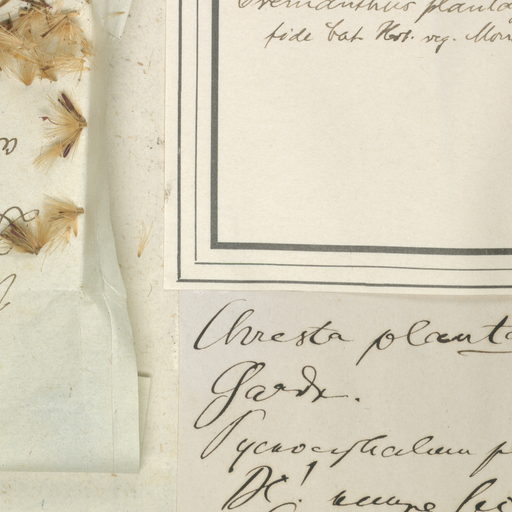 Eremanthus planta
fide Cat. Hort. reg. Mon
Chresta planta
Gardn.
Pycnocephalum p
DC!